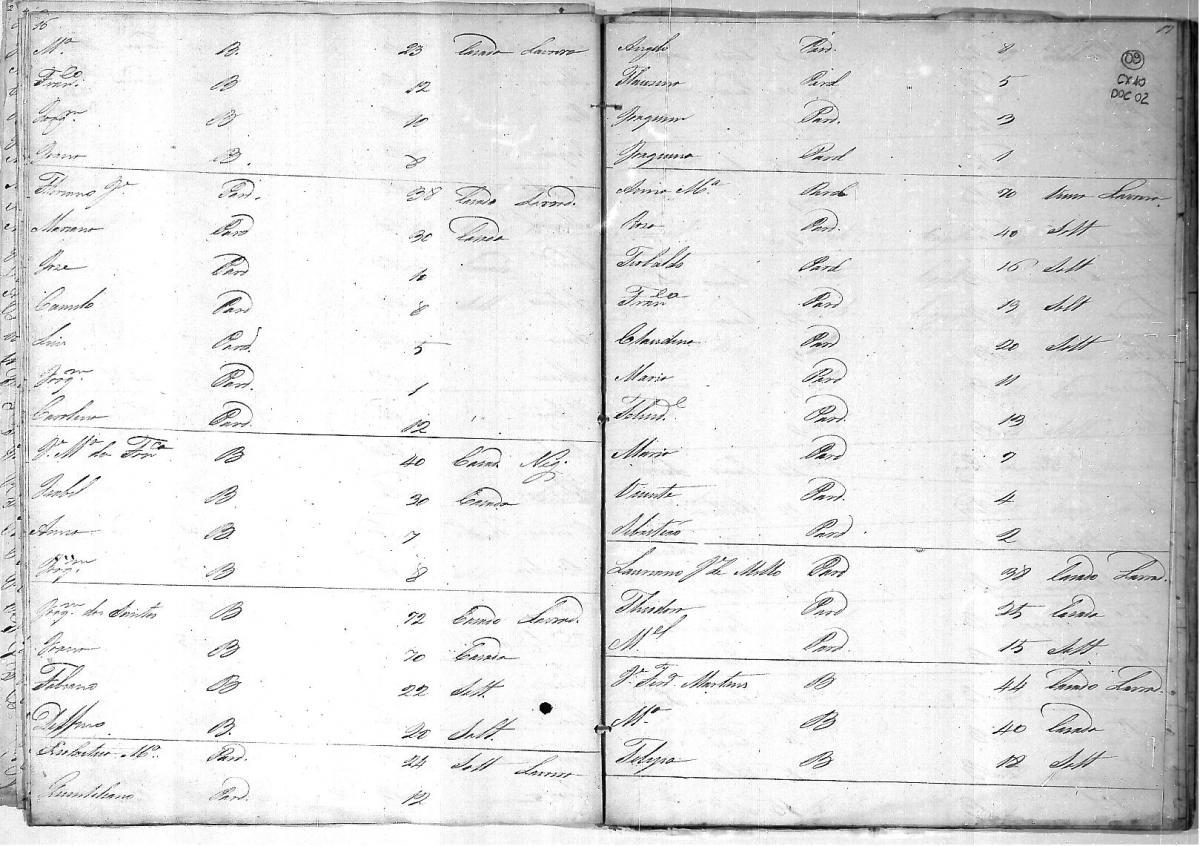 16
Mª B. 23 Casada Lavora
Franco B 12
Joqm. B 10
Joana B. 8
Floriano Je Pard. 38 Casado Lavrad.
Mariana Pard 30 Casada
Joze Pard 10
Camilo Pard 8
Luis Pard. 5
Joqm Pard. 1
Carolina Pard. 12
Je Mª da Fonca B 40 Casad. Neg.
Izabel B 30 Casada
Anna B. 7
Joqm B 8
Joqm dos Santos B 72 Casado Lavrad.
Joana B 70 Casada
Fabiano B 22 Solt.
B. 20 Solt.
Mª. Pard. 24 Solt Lavora
Quintiliano Pard. 12
17
09
CX 10
DOC 02
Angelo Pard. 8
Pard 5
Joaquim Pard. 3
Joaquina Pard 1
Anna Mª Pard 70 Viuva Lavora.
Roza Pard. 40 Solt
Teobaldo Pard 16 Solt
Franco Pard 13 Solt
Claudina Pard 20 Solt
Maria Pard 11
Pard. 13
Maria Pard 7
Vicente Pard. 4
Sebastião Pard 2
Lauriano Je de Mello Pard 38 Casado Lavrad.
Theodora Pard 25 Casada
Mel Pard. 15 Solt
Je Martins B 44 Casado Lavrad.
Mª B 40 Casada
Felipa B 18 Solt